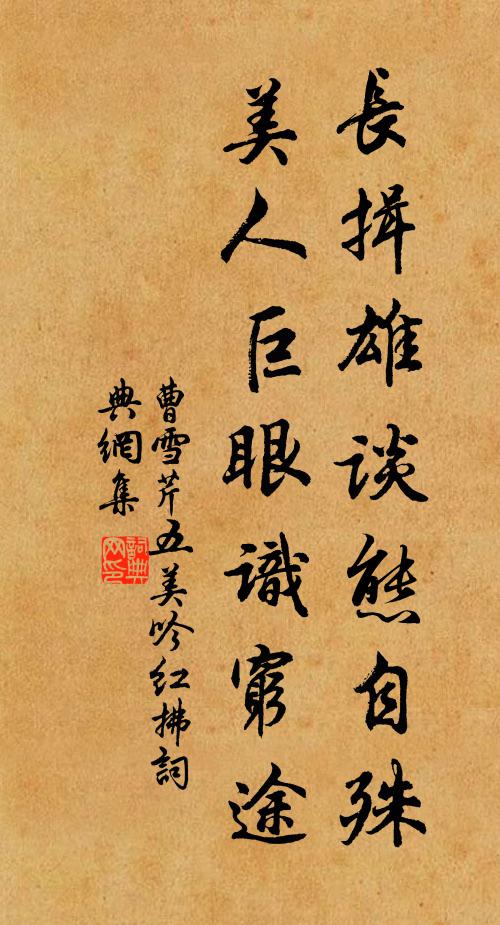 長揖雄談態自殊
美人巨眼識窮途
曹雪芹五美吟紅拂詞
典網集
詞典
网印